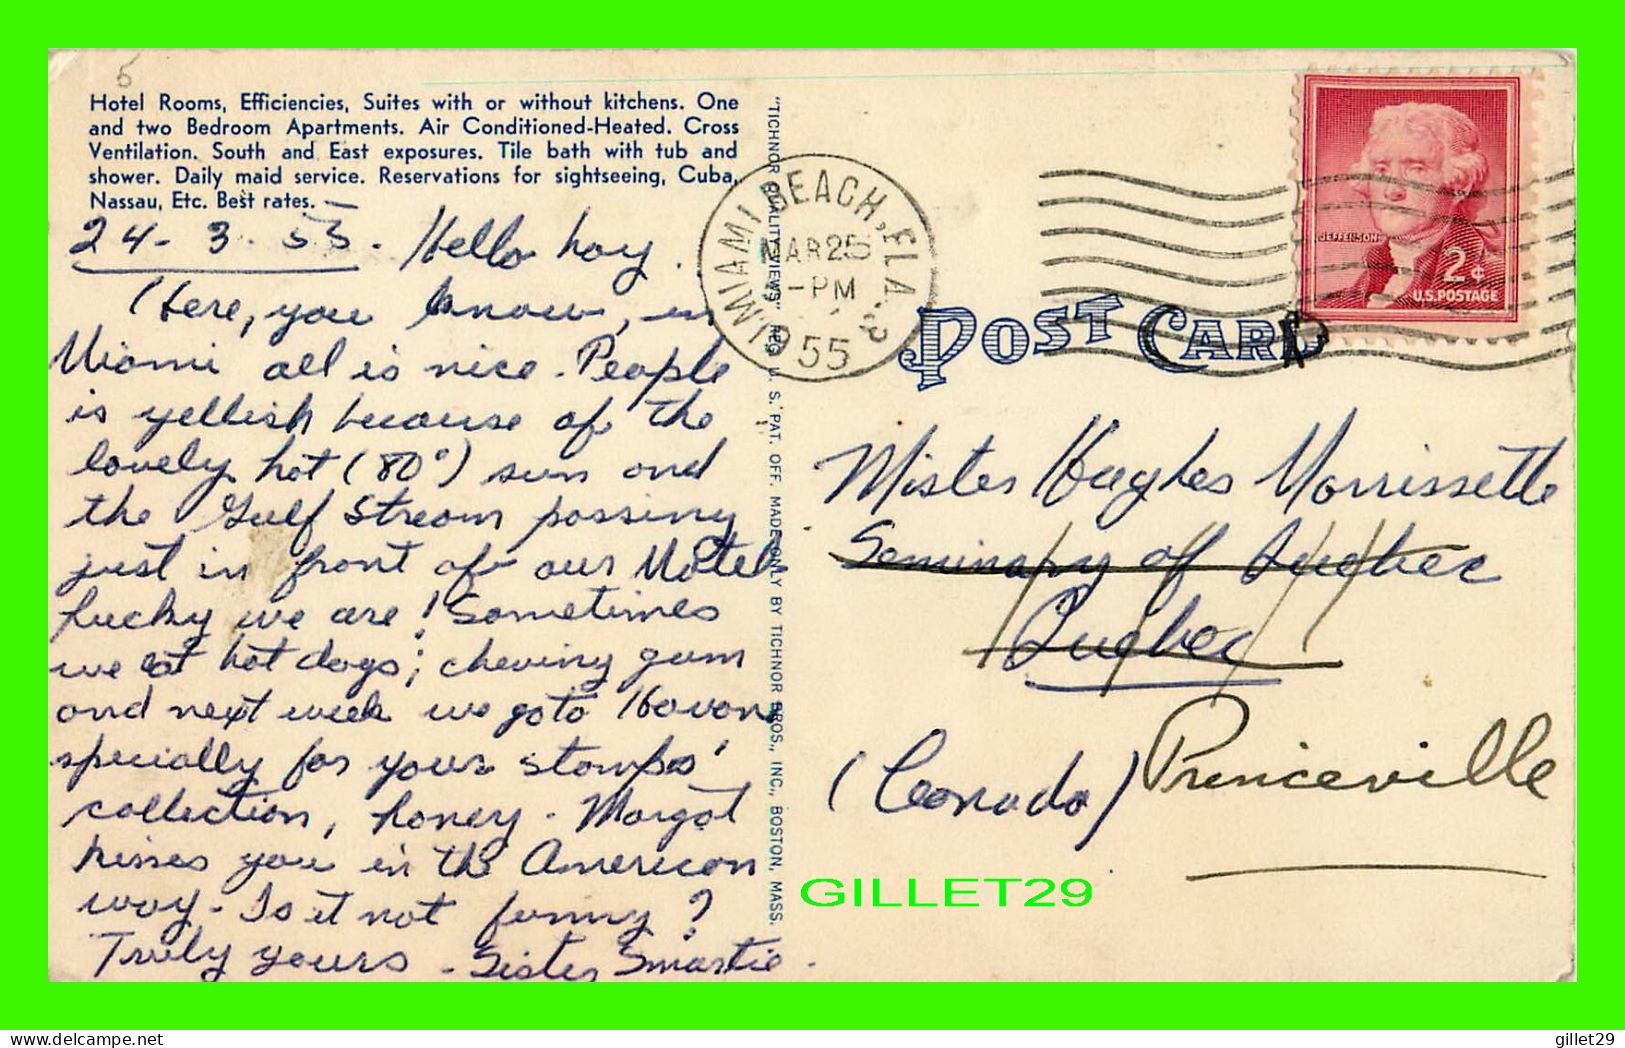 5
Hotel Rooms, Efficiencies, Suites with or without kitchens. One
and two Bedroom Apartments. Air Conditioned-Heated. Cross
Ventilation. South and East exposures. Tile bath with tub and
shower. Daily maid service. Reservations for sightseeing, Cuba,
Nassau, Etc. Best rates.
24-3.55. Hello hoy.
Here, you know, in
Miami all is nice. People
is yellish because of the
lovely hot (80°) sun and
the Gulf Stream possing
just in front of our Motel
Lucky we are! Sometimes
we eat hot dogs; chewing gum
and next week we go to Havana
specially for your stamps'
collection, honey. Margot
kisses you in the American
way. Is it not funny?
Truly yours. Sister Smartie.
"TICHNOR QUALITY VIEWS" REG. U. S. PAT. OFF. MADE ONLY BY TICHNOR BROS., INC., BOSTON, MASS.
MIAMI BEACH, FLA.
MAR 25
-PM
1955
POST CARD
JEFFERSON
2¢
U.S. POSTAGE
Mister Hughes Morrissette
Seminary of Quebec
Quebec
(Canada) Princeville
GILLET29
gillet29